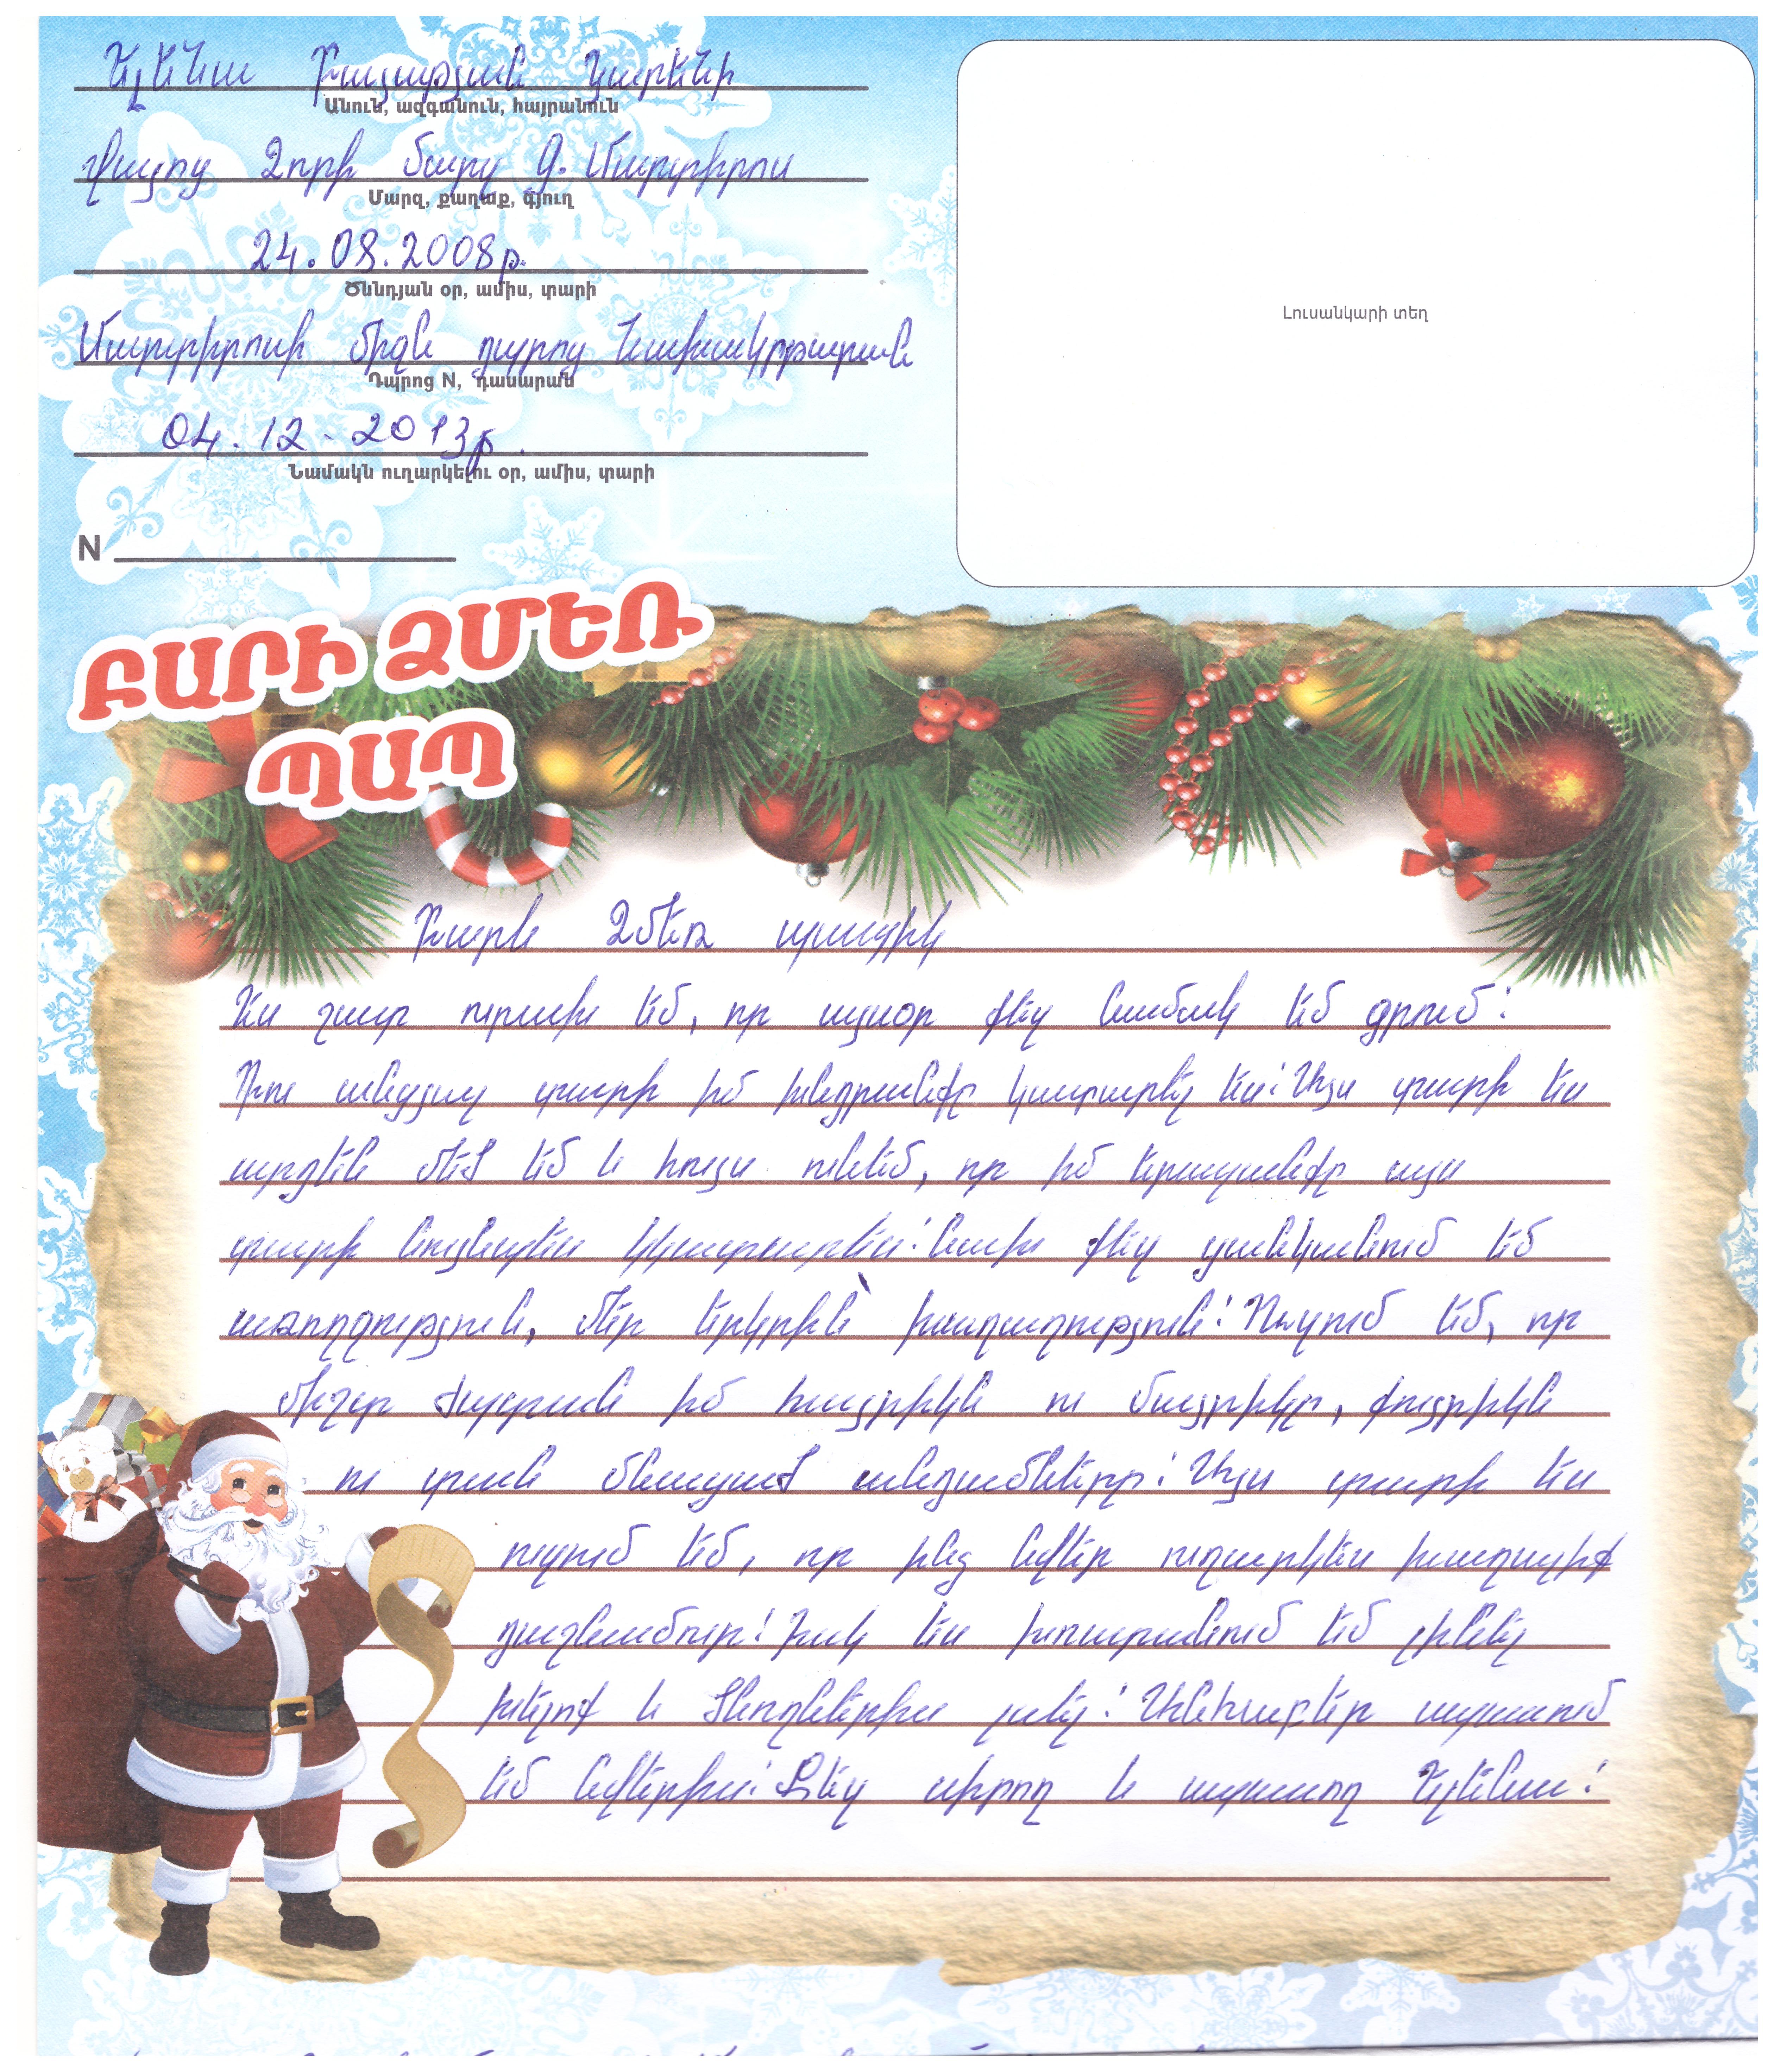 Ելենա Բալայան Կարենի
Անուն, ազգանուն, հայրանուն
Վայոց Ձորի մարզ Գ. Մարտիրոս
Մարզ, քաղաք, գյուղ
24.08.2008թ.
Ծննդյան օր, ամիս, տարի
Մարտիրոսի միջն դպրոց Նախակրթարան
Դպրոց N, դասարան
04.12.2013թ.
Նամակն ուղարկելու օր, ամիս, տարի
N
Լուսանկարի տեղ
ԲԱՐԻ ՁՄԵՌ
ՊԱՊ
Բարև Ձմեռ պապիկ
Ես շատ ուրախ եմ, որ այսօր քեզ նամակ եմ գրում:
Դու անցյալ տարի իմ խնդրանքը կատարել ես: Այս տարի ես
արդեն մեծ եմ և հույս ունեմ, որ իմ երազանքը այս
տարի նույնպես կկատարես: Նախ քեզ ցանկանում եմ
առողջություն, մեր երկրին՝ խաղաղություն: Ուզում եմ, որ
միշտ ժպտան իմ հայրիկն ու մայրիկը, քույրիկն
ու տան մնացած անդամները: Այս տարի ես
ուզում եմ, որ ինձ նվեր ուղարկես խաղալիք
դաշնամուր: Իսկ ես խոստանում եմ լինել
խելոք և ծնողներիս լսել: Անհամբեր սպասում
եմ նվերիս: Քեզ սիրող և սպասող Ելենա: